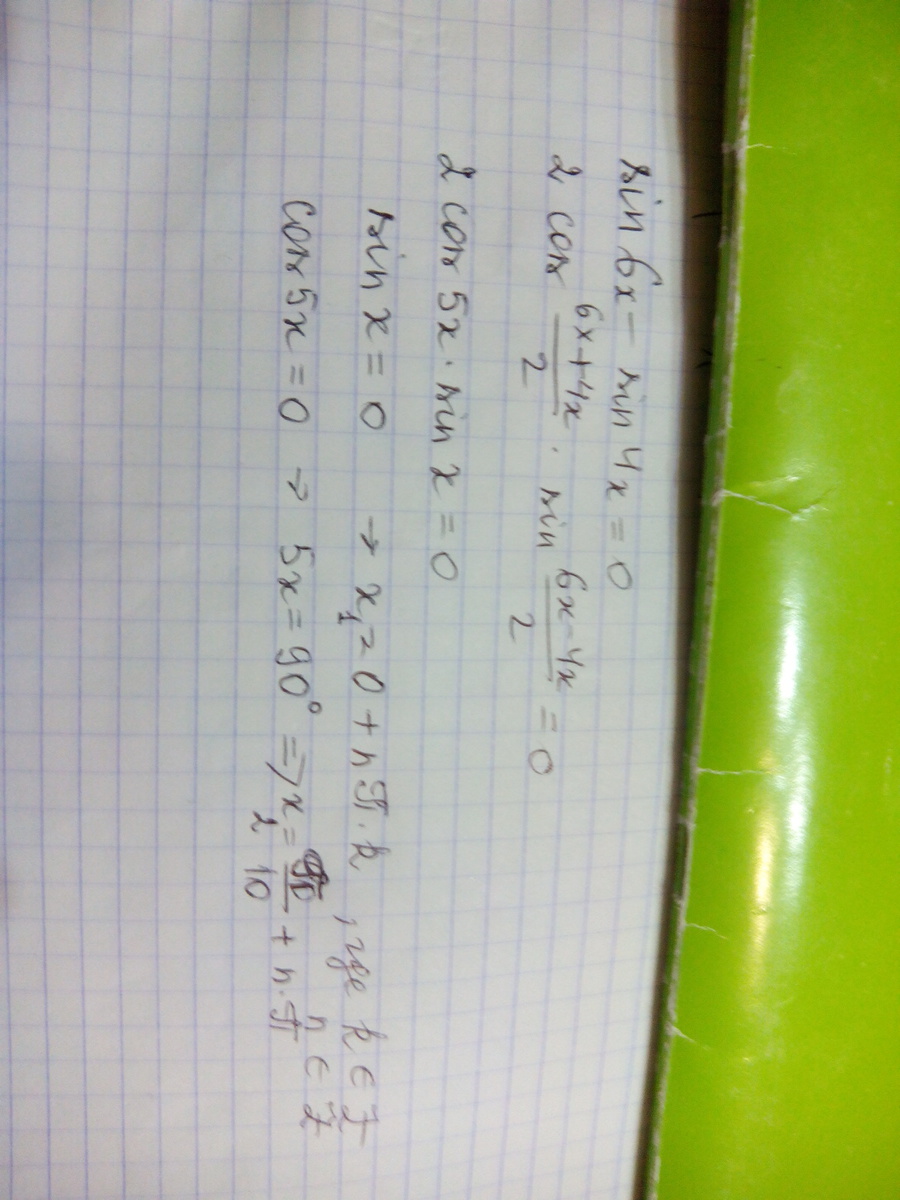 sin 6x - sin 4x = 0
2 cos (6x+4x)/2 · sin (6x-4x)/2 = 0
2 cos 5x · sin x = 0
sin x = 0 → x₁ = 0 + nπ·k, где k ∈ Z
cos 5x = 0 → 5x = 90° => x₂ = π/10 + n·π n ∈ Z